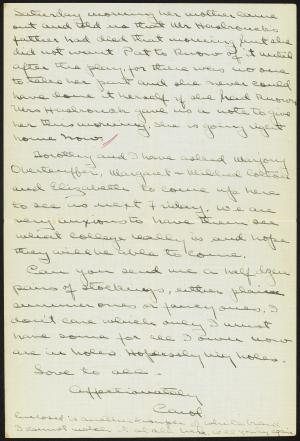 Saturday morning her mother came
out and told us that Mr Hasbrouck's
father had died that morning, but she
did not want Pat to know of it until
after the play, for there was no one
to take her part and she never could
have done it herself if she had known.
Mrs Hasbrouck gave us a note to give
her this morning. She is going right
home now.
Dorothy and I have asked Marjory
Overtenffer, Margaret + Mildred
and Elizabeth to come up here
to see us next Friday. We are
very anxious to have them see
what college really is and hope
they will be able to come.
Can you send me a half dozen
pairs of stockings, either plain
summer ones or fancy ones. I
don't care which only I must
have some for all I own now
are in holes. Hopelessly my holes.
Love to all -
Affectionately
Carol
Enclosed is another sample of
I cannot match it at all